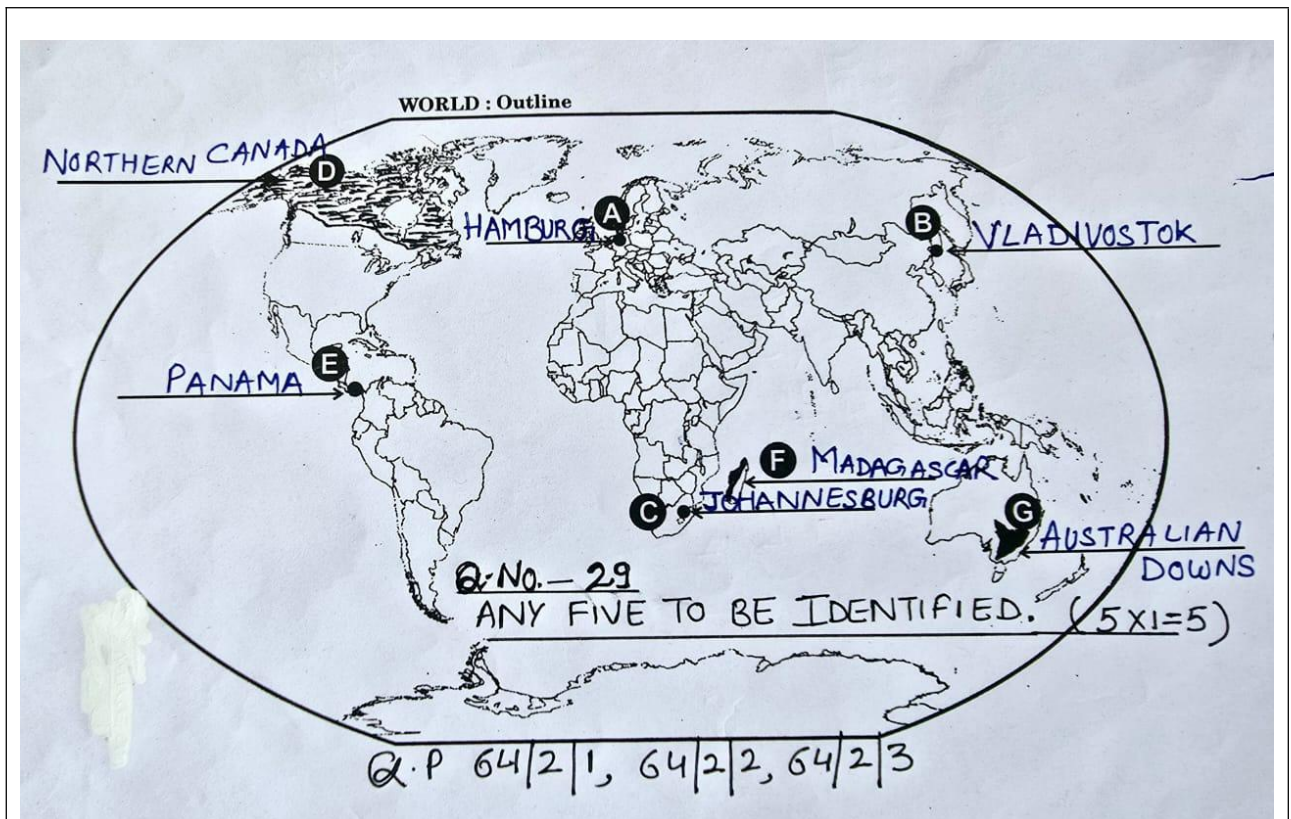 WORLD : Outline
NORTHERN CANADA
D
A
HAMBURG
B
VLADIVOSTOK
E
PANAMA
F MADAGASCAR
C JOHANNESBURG
G
AUSTRALIAN
DOWNS
Q.No. – 29
ANY FIVE TO BE IDENTIFIED. (5x1=5)
Q.P 64/2/1, 64/2/2, 64/2/3